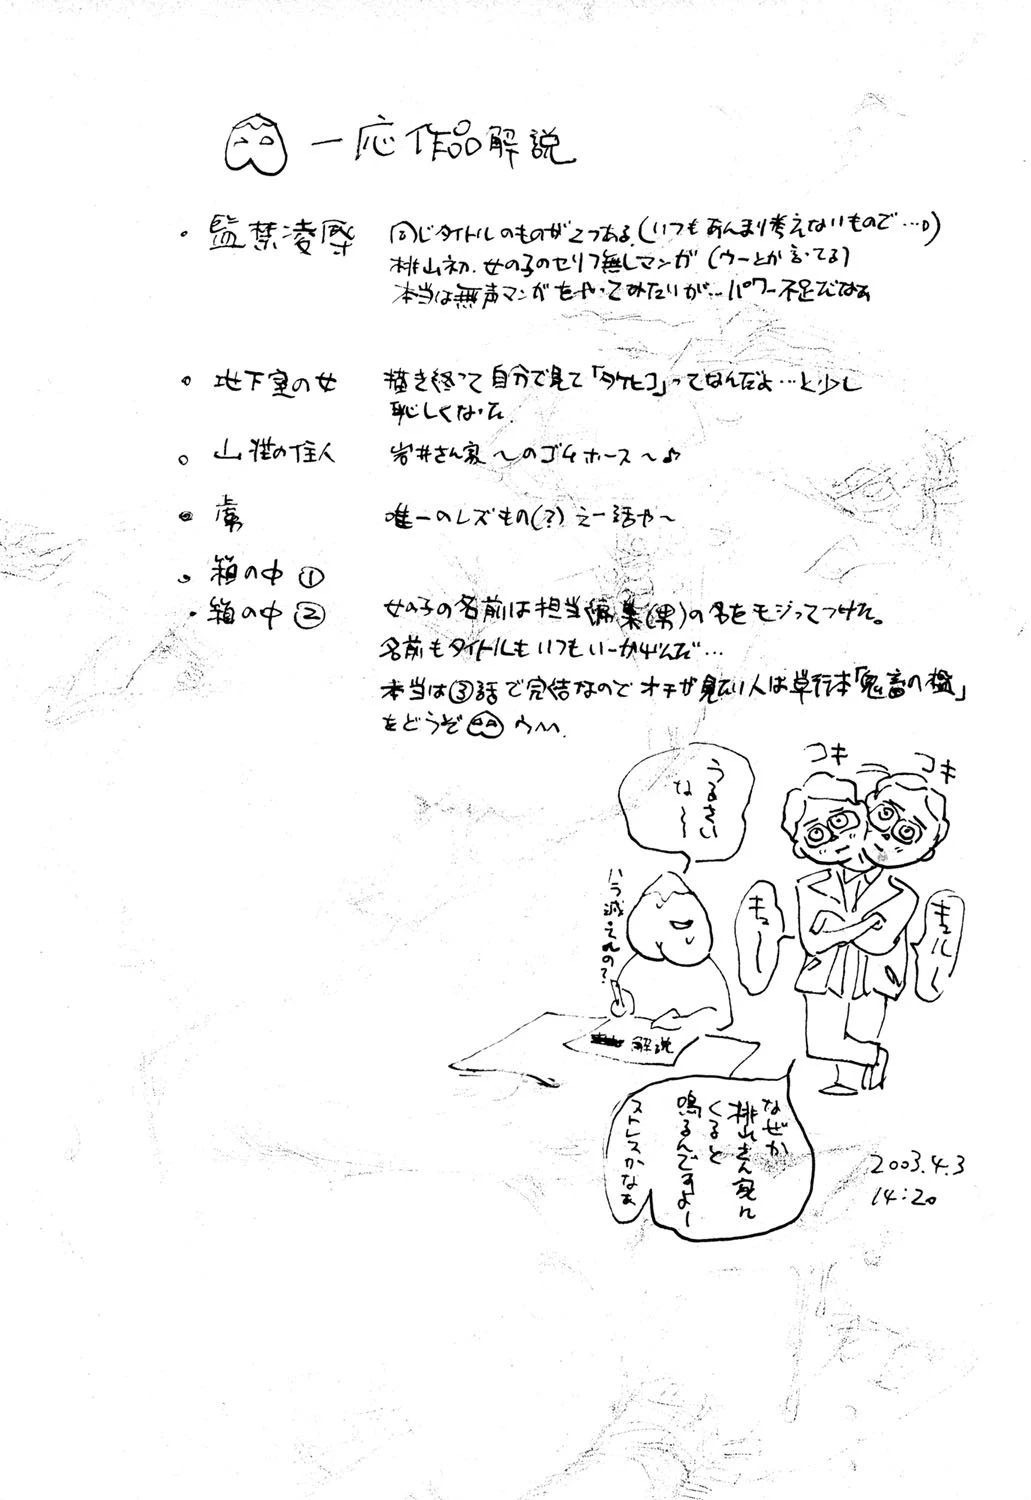 一応作品解説
・監禁凌辱 同じタイトルのものが2つある。(いつもあんまり考えないもので…。)
桃山初、女の子のセリフ無しマンガ(ウーとか言ってる)
本当は無声マンガをやってみたいが…パワー不足だなぁ
・地下室の女 描き終って自分で見て「タケヒコ」ってなんだよ…と少し
恥しくなった
。山荘の住人 岩井さん家〜のゴムホース〜♪
・虜 唯一のレズもの(?)えー話や〜
・箱の中①
・箱の中② 女の子の名前は担当編集(男)の名をモジってつけた。
名前もタイトルもいつもいーかげんだ…
本当は③話で完結なのでオチが見たい人は単行本「鬼畜の檻」
をどうぞ
コキ
コキ
うるさい
な〜
ハラ減ってんの?
キュー
キュルー
解説
なぜか
桃山さん家に
くると
鳴るんですよー
ストレスかなぁ
2003.4.3
14:20